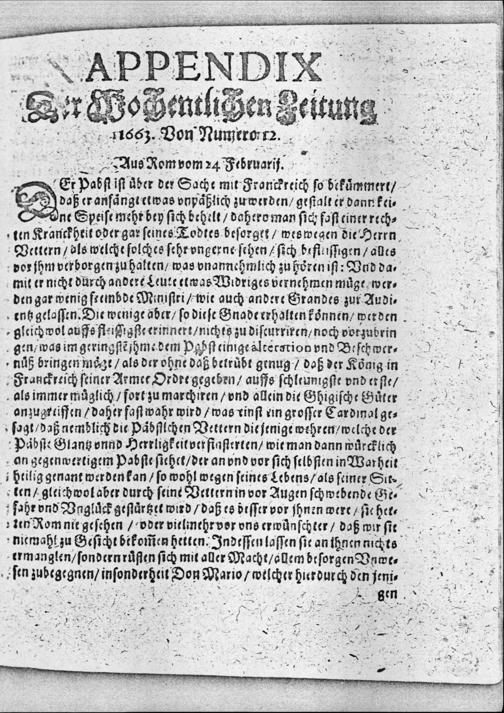 APPENDIX
Der Wochentlichen Zeitung
1663. Von Numero 12.
Aus Rom vom 24 Februarij.
DEr Pabst ist über der Sache mit Franckreich so bekümmert/
daß er anfängt etwas unpäßlich zu werden/ gestalt er dann kei-
ne Speise mehr bey sich behelt/ dahero man sich fast einer rech-
ten Kranckheit oder gar seines Todtes besorget/ weswegen die Herrn
Vettern/ als welche solches sehr ungerne sehen/ sich befleissigen/ alles
vor jhm verborgen zu halten/ was unannehmlich zu hören ist: Und da-
mit er nicht durch andere Leute etwas Widriges vernehmen müge/ wer-
den gar wenig feembde Ministri/ wie auch andere Grandes zur Audi-
entz gelassen. Die wenige aber/ so diese Gnade erhalten können/ werden
gleichwol auffs fleissigste erinnert/ nichts zu discurriren/ noch vorzubrin
gen/ was im geringste jhme dem Pabst einige alteration und Beschwer-
nüß bringen möge/ als der ohne daß betrübt genug/ daß der König in
Franckreich seiner Armee Ordre gegeben/ auffs schleunigste und erste/
als immer müglich/ fort zu marchiren/ und allein die Ghigische Güter
anzugreiffen/ daher fast wahr wird/ was einst ein grosser Cardinal ge-
sagt/ daß nemblich die Päbstlichen Vettern die jenige wehren/ welche der
Päbste Glantz unnd Herrligkeit verfinsterten/ wie man dann würcklich
an gegenwertigem Pabste siehet/ der an und vor sich selbsten in Warheit
heilig genant werden kan/ so wohl wegen seines Lebens/ als seiner Sit-
ten/ gleichwol aber durch seine Vettern in vor Augen schwebende Ge-
fahr und Unglück gestürtzet wird/ daß es besser vor jhnen were/ sie het-
ten Rom nie gesehen/ oder vielmehr vor uns erwünschter/ daß wir sie
niemahl zu Gesicht bekom̃en hetten. Indessen lassen sie an jhnen nichts
ermanglen/ sondern rüsten sich mit aller Macht/ allem besorgen Unwe-
sen zubegegnen/ insonderheit Don Mario/ welcher hierdurch den jeni-
gen